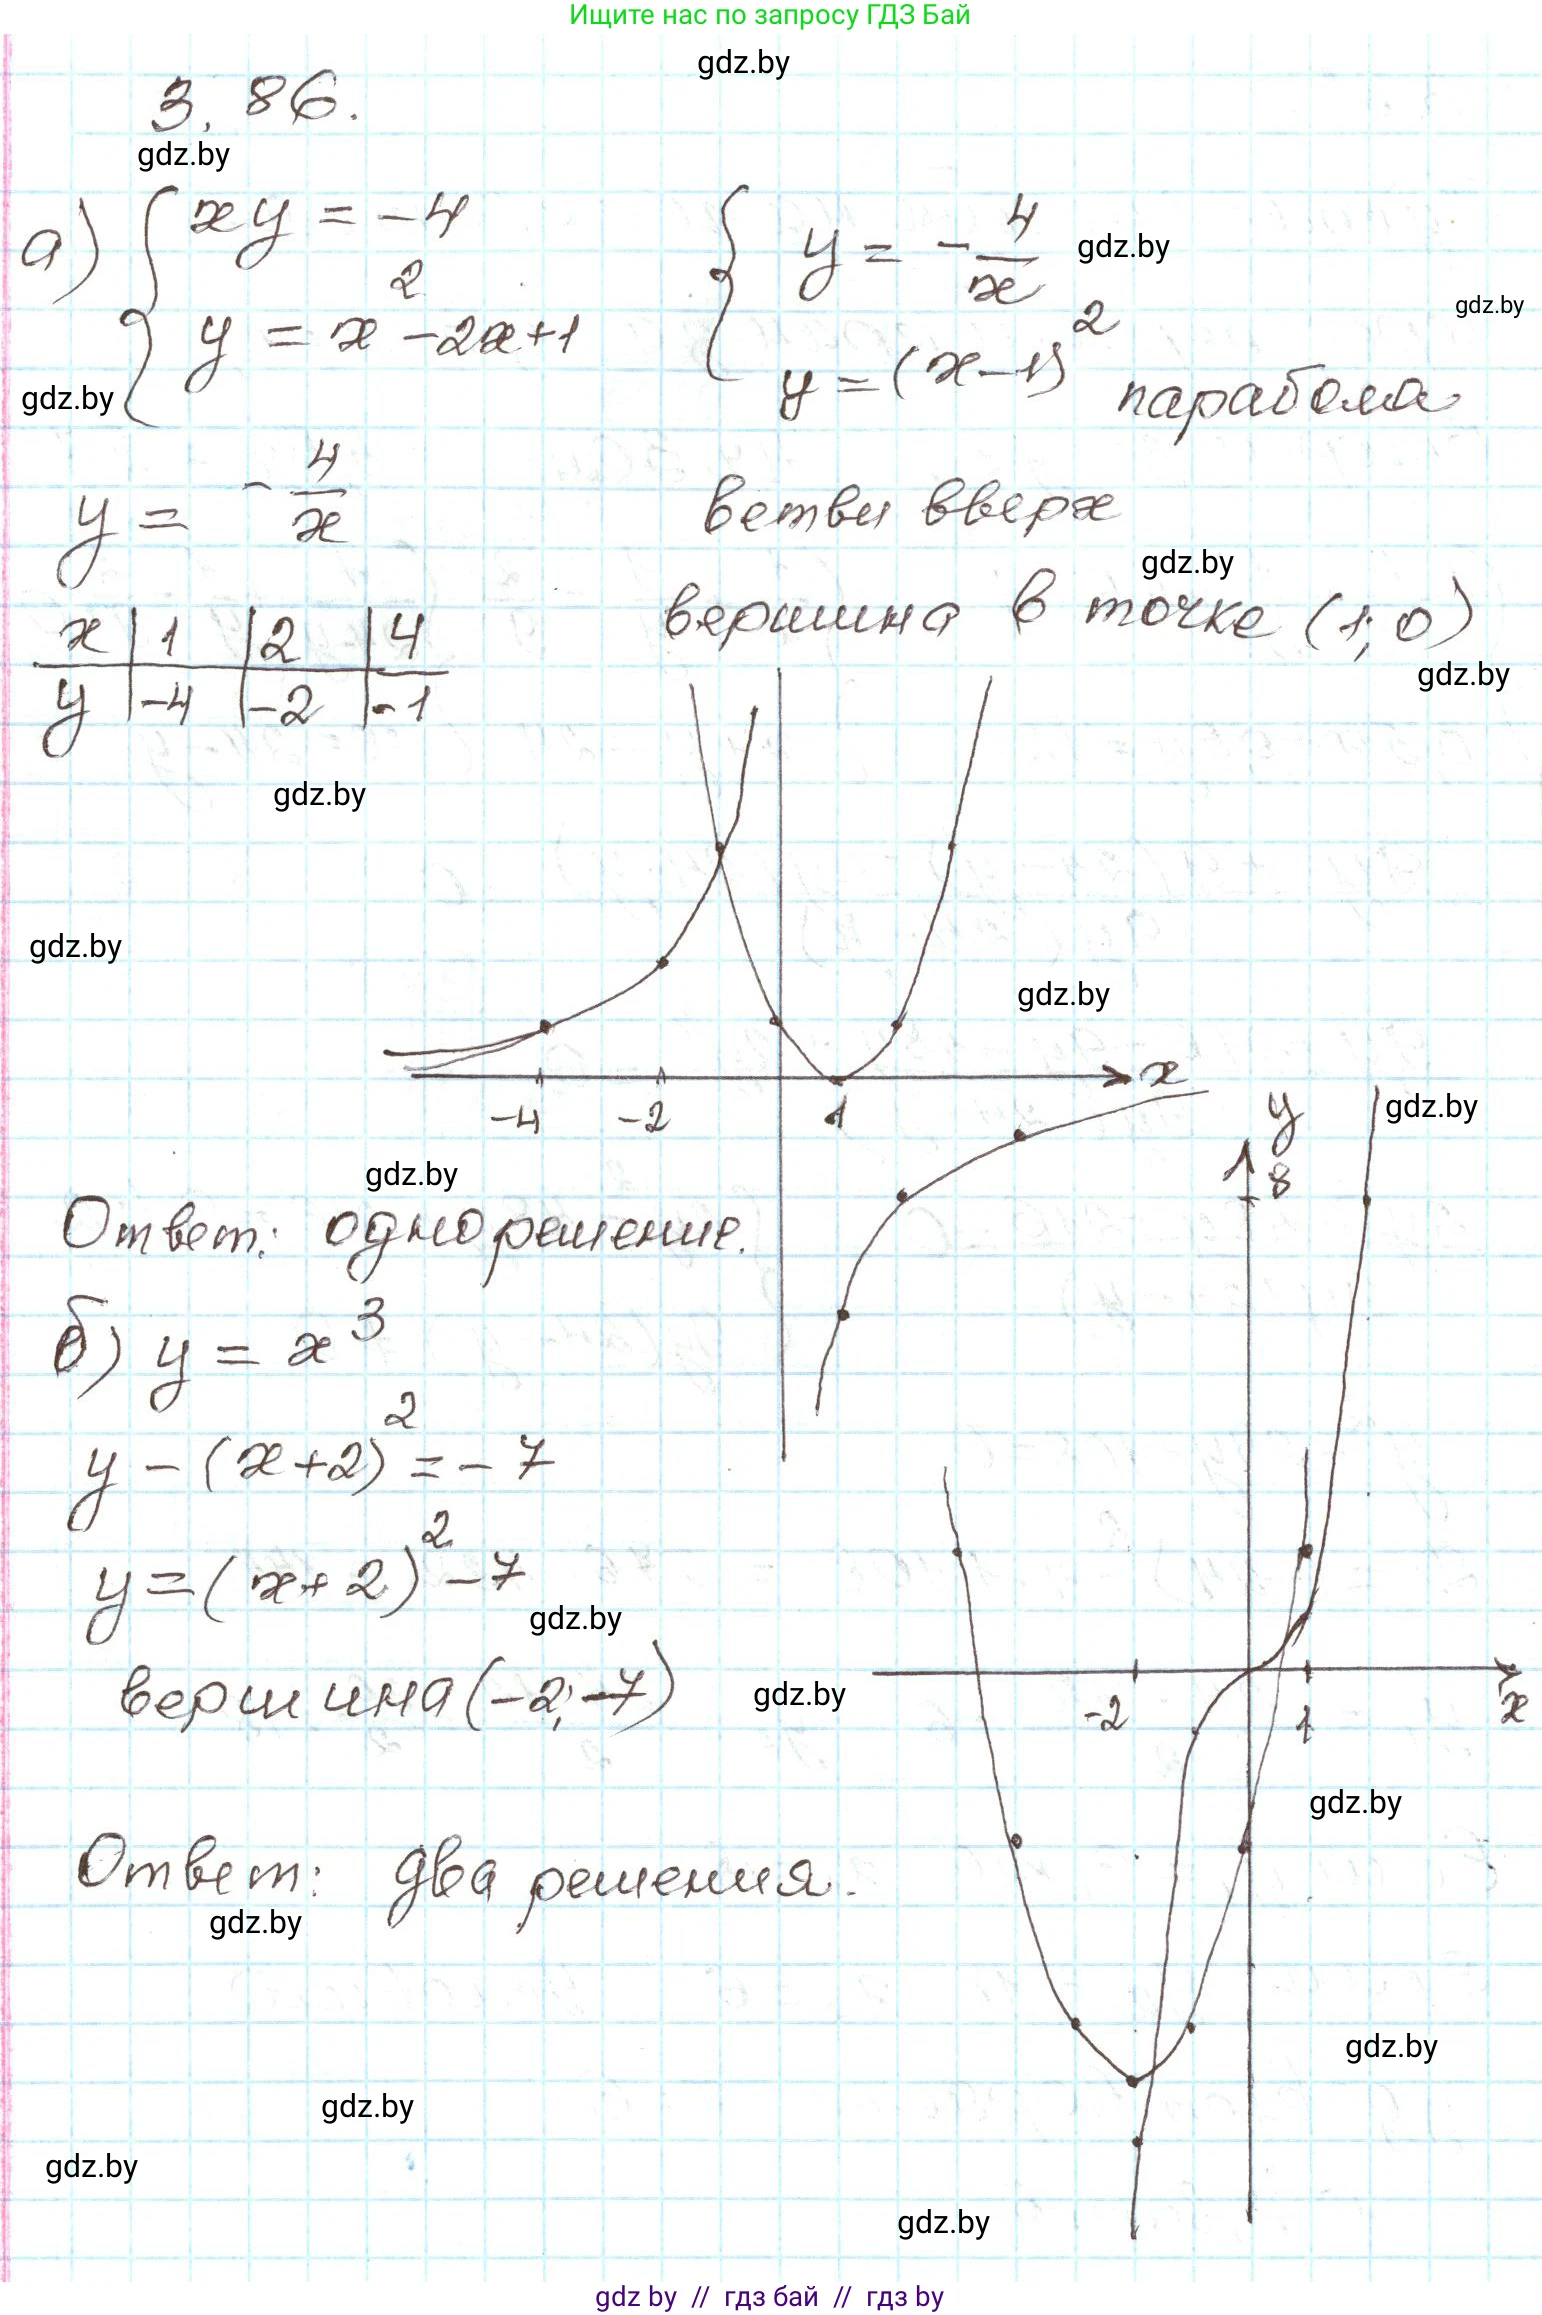 Ищите нас по запросу ГДЗ Бай
gdz.by
3.86.
gdz.by
а) { xy = -4
y = x² -2x+1
{ y = - 4/x
gdz.by
gdz.by
y = (x-1)² парабола
gdz.by
y = - 4/x
ветви вверх
gdz.by
вершина в точке (1; 0)
x | 1 | 2 | 4
y | -4 | -2 | -1
gdz.by
gdz.by
gdz.by
gdz.by
x
-4 -2 1
y
gdz.by
8
gdz.by
Ответ: одно решение.
б) y = x³
y - (x+2)² = - 7
y = (x+2)² - 7
gdz.by
вершина (-2; -7)
gdz.by
-2 1 x
gdz.by
Ответ: два решения.
gdz.by
gdz.by
gdz.by
gdz.by
gdz.by
gdz by // гдз бай // гдз by